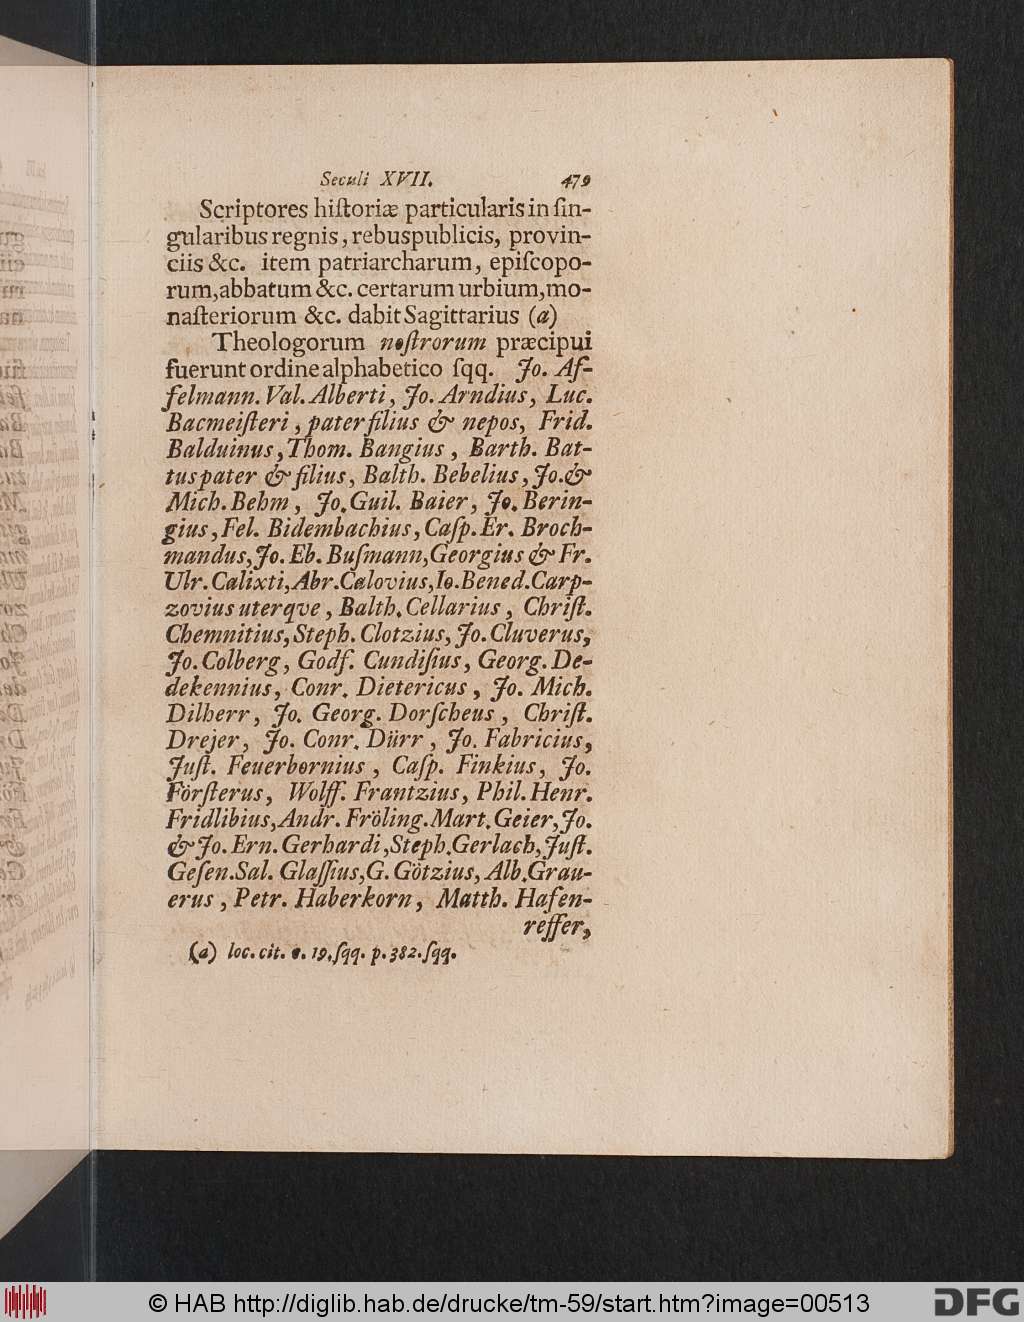 Seculi XVII. 479
Scriptores hiſtoriæ particularis in ſin-
gularibus regnis, rebuspublicis, provin-
ciis &c. item patriarcharum, epiſcopo-
rum, abbatum &c. certarum urbium, mo-
naſteriorum &c. dabit Sagittarius (a)
Theologorum noſtrorum præcipui
fuerunt ordine alphabetico ſqq. Jo. Aſ-
ſelmann. Val. Alberti, Jo. Arndius, Luc.
Bacmeiſteri, pater filius & nepos, Frid.
Balduinus, Thom. Bangius, Barth. Bat-
tus pater & filius, Balth. Bebelius, Jo. &
Mich. Behm, Jo. Guil. Baier, Jo. Berin-
gius, Fel. Bidembachius, Caſp. Er. Broch-
mandus, Jo. Eb. Buſmann, Georgius & Fr.
Ulr. Calixti, Abr. Calovius, Io. Bened. Carp-
zovius uterqve, Balth. Cellarius, Chriſt.
Chemnitius, Steph. Clotzius, Jo. Cluverus,
Jo. Colberg, Godf. Cundiſius, Georg. De-
dekennius, Conr. Dietericus, Jo. Mich.
Dilherr, Jo. Georg. Dorſcheus, Chriſt.
Drejer, Jo. Conr. Dürr, Jo. Fabricius,
Juſt. Feuerbornius, Caſp. Finkius, Jo.
Förſterus, Wolff. Frantzius, Phil. Henr.
Fridlibius, Andr. Fröling. Mart. Geier, Jo.
& Jo. Ern. Gerhardi, Steph. Gerlach, Juſt.
Geſen. Sal. Glaſſius, G. Götzius, Alb. Grau-
erus, Petr. Haberkorn, Matth. Hafen-
reffer,
(a) loc. cit. 19. ſqq. p. 382. ſqq.
© HAB http://diglib.hab.de/drucke/tm-59/start.htm?image=00513
DFG